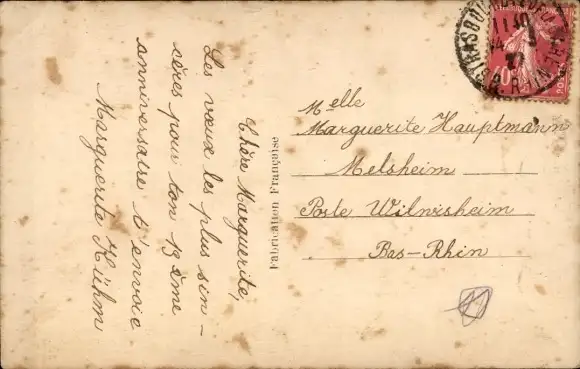 Chère Marguerite,
Les vœux les plus sin-
cères pour ton 13ème
anniversaire t'envoie
Marguerite Hühm
Fabrication Française
Melle
Marguerite Hauptmann
Melsheim
Poste Wilwisheim
Bas-Rhin
STRASBOURG
40